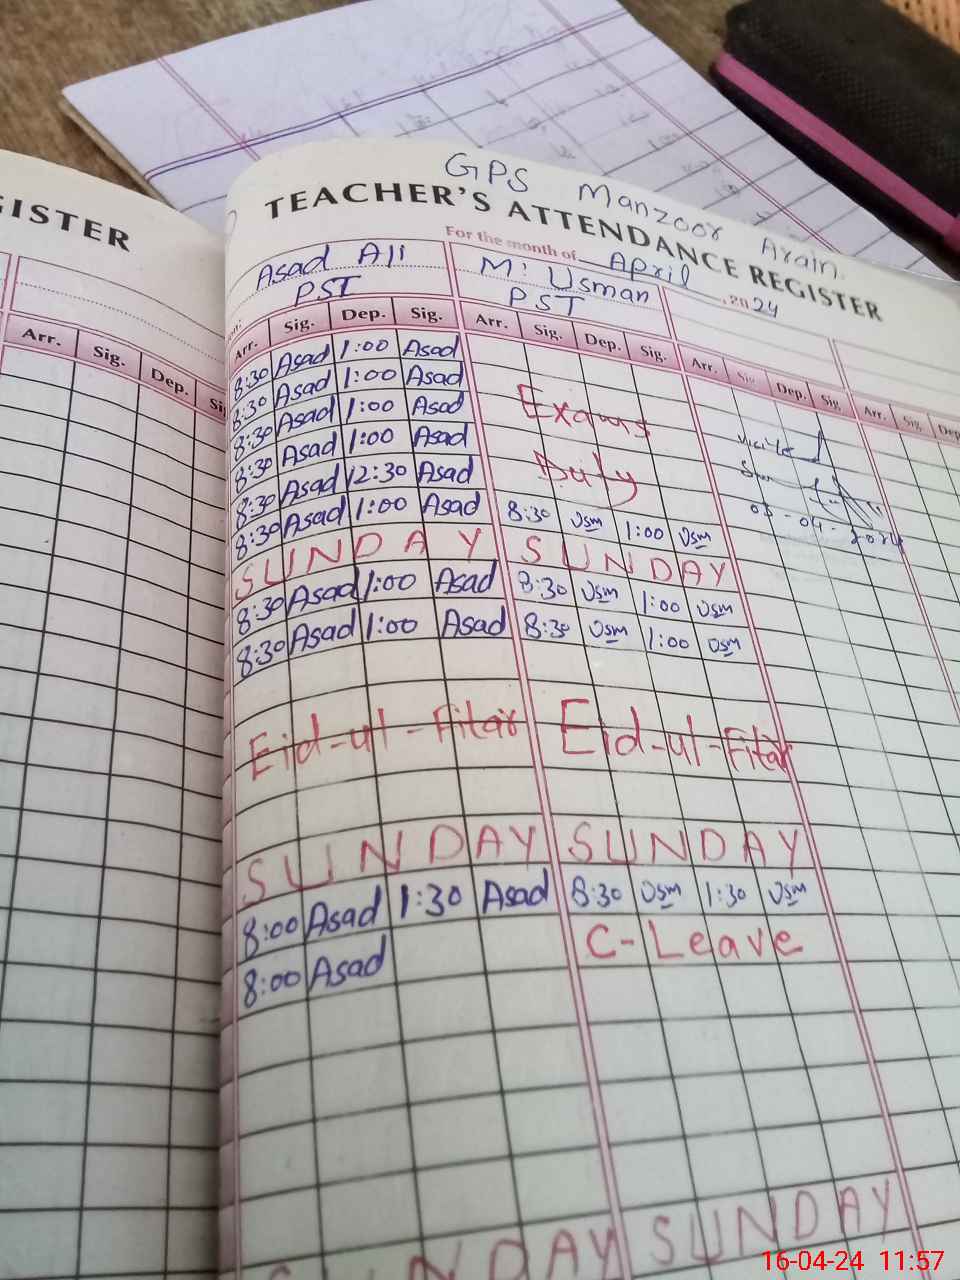 GPS Manzoor Arain.
GISTER
TEACHER'S ATTENDANCE REGISTER
For the month of April, 2024
Asad Ali M. Usman
PST PST
Arr. Sig. Dep. Arr. Sig. Dep. Sig. Arr. Sig. Dep. Sig. Arr. Sig. Dep. Sig. Arr. Sig. Dep.
8:30 Asad 1:00 Asad
8:30 Asad 1:00 Asad
8:30 Asad 1:00 Asad Exams
8:30 Asad 1:00 Asad
8:30 Asad 12:30 Asad Duty
8:30 Asad 1:00 Asad 8:30 Usm 1:00 Usm
SUNDAY SUNDAY
8:30 Asad 1:00 Asad 8:30 Usm 1:00 Usm
8:30 Asad 1:00 Asad 8:30 Usm 1:00 Usm
Eid-ul-Fitar Eid-ul-Fitar
SUNDAY SUNDAY
8:00 Asad 1:30 Asad 8:30 Usm 1:30 Usm
8:00 Asad C-Leave
SUNDAY SUNDAY
16-04-24 11:57